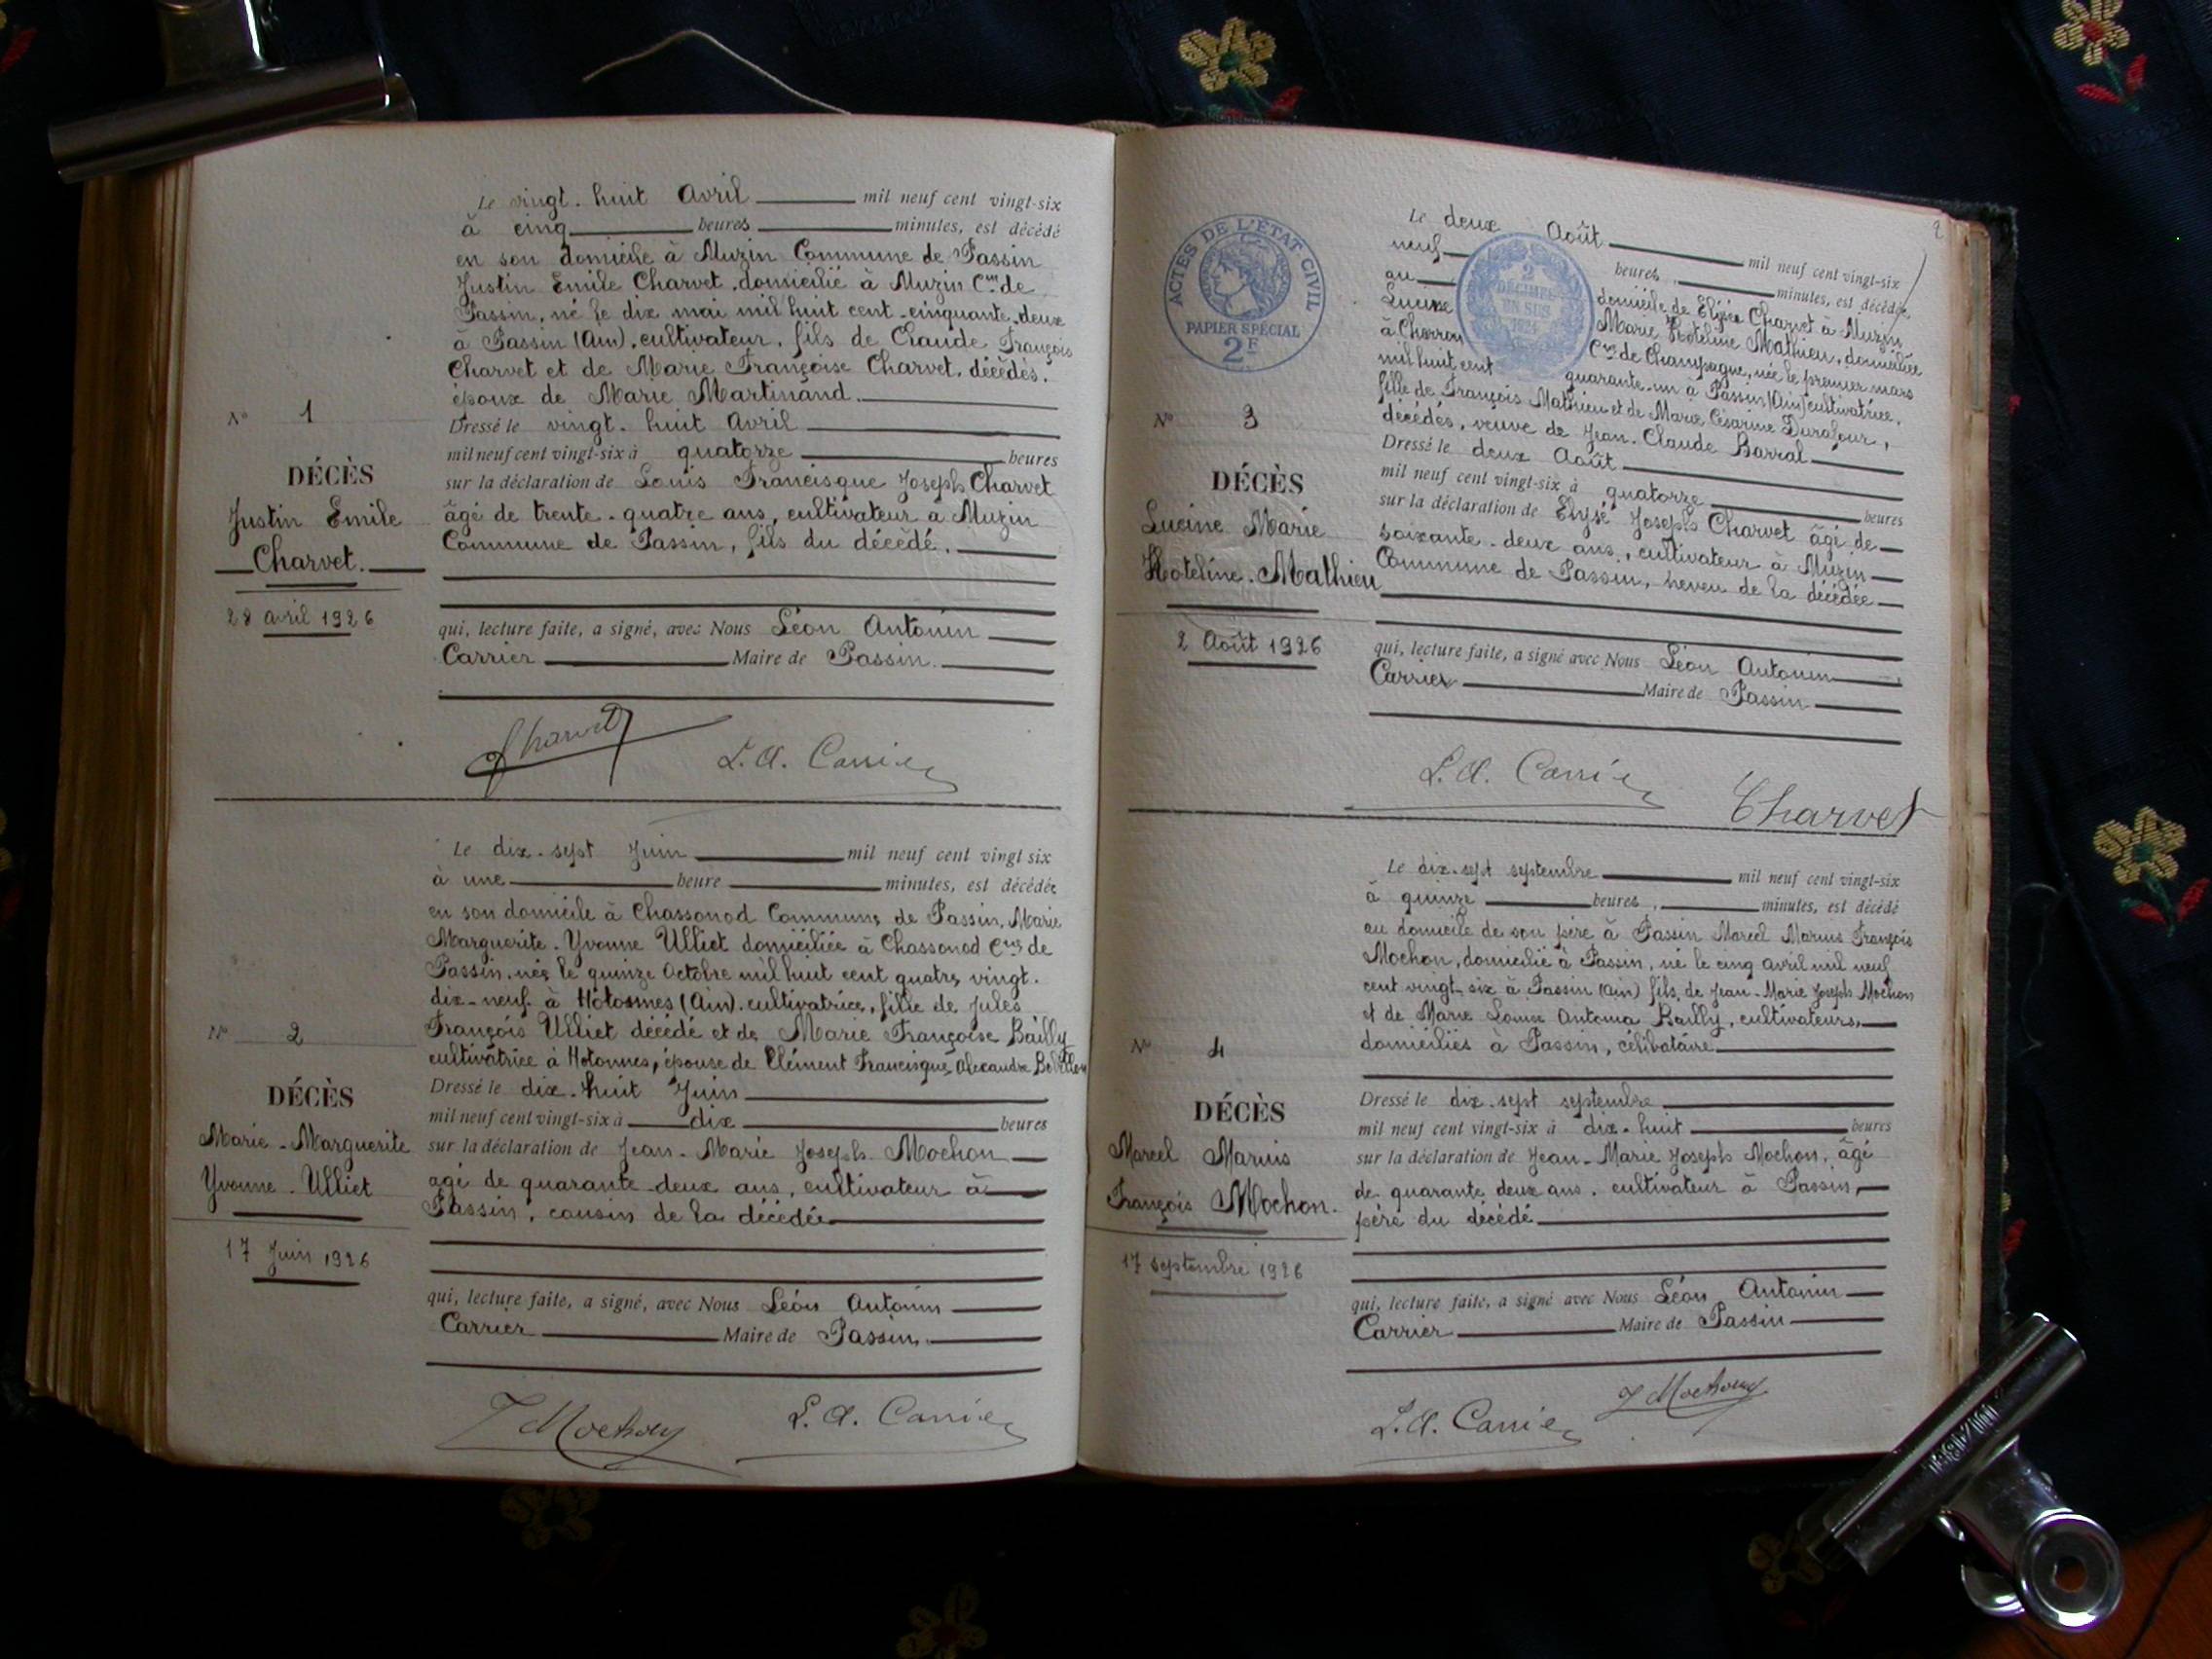 Le vingt-huit Avril mil neuf cent vingt-six
à cinq heures minutes, est décédé
en son domicile à Muzin Commune de Passin
Justin Emile Charvet, domicilié à Muzin Cne de
Passin, né le dix mai mil huit cent cinquante deux
à Passin (Ain), cultivateur, fils de Claude François
Charvet et de Marie Françoise Charvet, décédés,
époux de Marie Martinand.
N° 1
DÉCÈS
Justin Emile
Charvet.
28 avril 1926
Dressé le vingt-huit Avril
mil neuf cent vingt-six à quatorze heures
sur la déclaration de Louis Francisque Joseph Charvet
âgé de trente-quatre ans, cultivateur à Muzin
Commune de Passin, fils du décédé.
qui, lecture faite, a signé, avec Nous Léon Antonin
Carrier Maire de Passin.
Charvet L. A. Carrier
Le dix-sept Juin mil neuf cent vingt six
à une heure minutes, est décédée
en son domicile à Chassonod Commune de Passin, Marie
Marguerite Yvonne Ulliet domiciliée à Chassonod Cne de
Passin, née le quinze Octobre mil huit cent quatre vingt
dix-neuf à Hotonnes (Ain), cultivatrice, fille de Jules
François Ulliet décédé et de Marie Françoise Bailly
cultivatrice à Hotonnes, épouse de Clément Francisque Alexandre
N° 2
DÉCÈS
Marie-Marguerite
Yvonne-Ulliet
17 Juin 1926
Dressé le dix-huit Juin
mil neuf cent vingt-six à dix heures
sur la déclaration de Jean-Marie Joseph Mochon
âgé de quarante-deux ans, cultivateur à
Passin, cousin de la décédée
qui, lecture faite, a signé, avec Nous Léon Antonin
Carrier Maire de Passin.
J Mochon L. A. Carrier
2
ACTES DE L'ÉTAT CIVIL
PAPIER SPÉCIAL
2F
2 DÉCIMES EN SUS 1924
Le deux Août mil neuf cent vingt-six
neuf heures minutes, est décédée
au domicile de Elysée Charvet à Muzin
Lucine Marie Hoteline Mathieu, domiciliée
à Cne de Champagne, née le premier mars
mil huit cent quarante-un à Passin (Ain) cultivatrice,
fille de François Mathieu et de Marie Césarine Durafour,
décédés, veuve de Jean-Claude Barral
N° 3
DÉCÈS
Lucine Marie
Hoteline-Mathieu
2 Août 1926
Dressé le deux Août
mil neuf cent vingt-six à quatorze heures
sur la déclaration de Elysé Joseph Charvet âgé de
soixante-deux ans, cultivateur à Muzin
Commune de Passin, neveu de la décédée
qui, lecture faite, a signé avec Nous Léon Antonin
Carrier Maire de Passin
L. A. Carrier Charvet
Le dix-sept septembre mil neuf cent vingt-six
à quinze heures, minutes, est décédé
au domicile de son père à Passin Marcel Marius François
Mochon, domicilié à Passin, né le cinq avril mil neuf
cent vingt-six à Passin (Ain) fils de Jean-Marie Joseph Mochon
et de Marie Louise Antonia Bailly, cultivateurs,
domiciliés à Passin, célibataire
N° 4
DÉCÈS
Marcel Marius
François Mochon.
17 septembre 1926
Dressé le dix-sept septembre
mil neuf cent vingt-six à dix-huit heures
sur la déclaration de Jean-Marie Joseph Mochon, âgé
de quarante deux ans, cultivateur à Passin,
père du décédé
qui, lecture faite, a signé avec Nous Léon Antonin
Carrier Maire de Passin
L. A. Carrier J Mochon